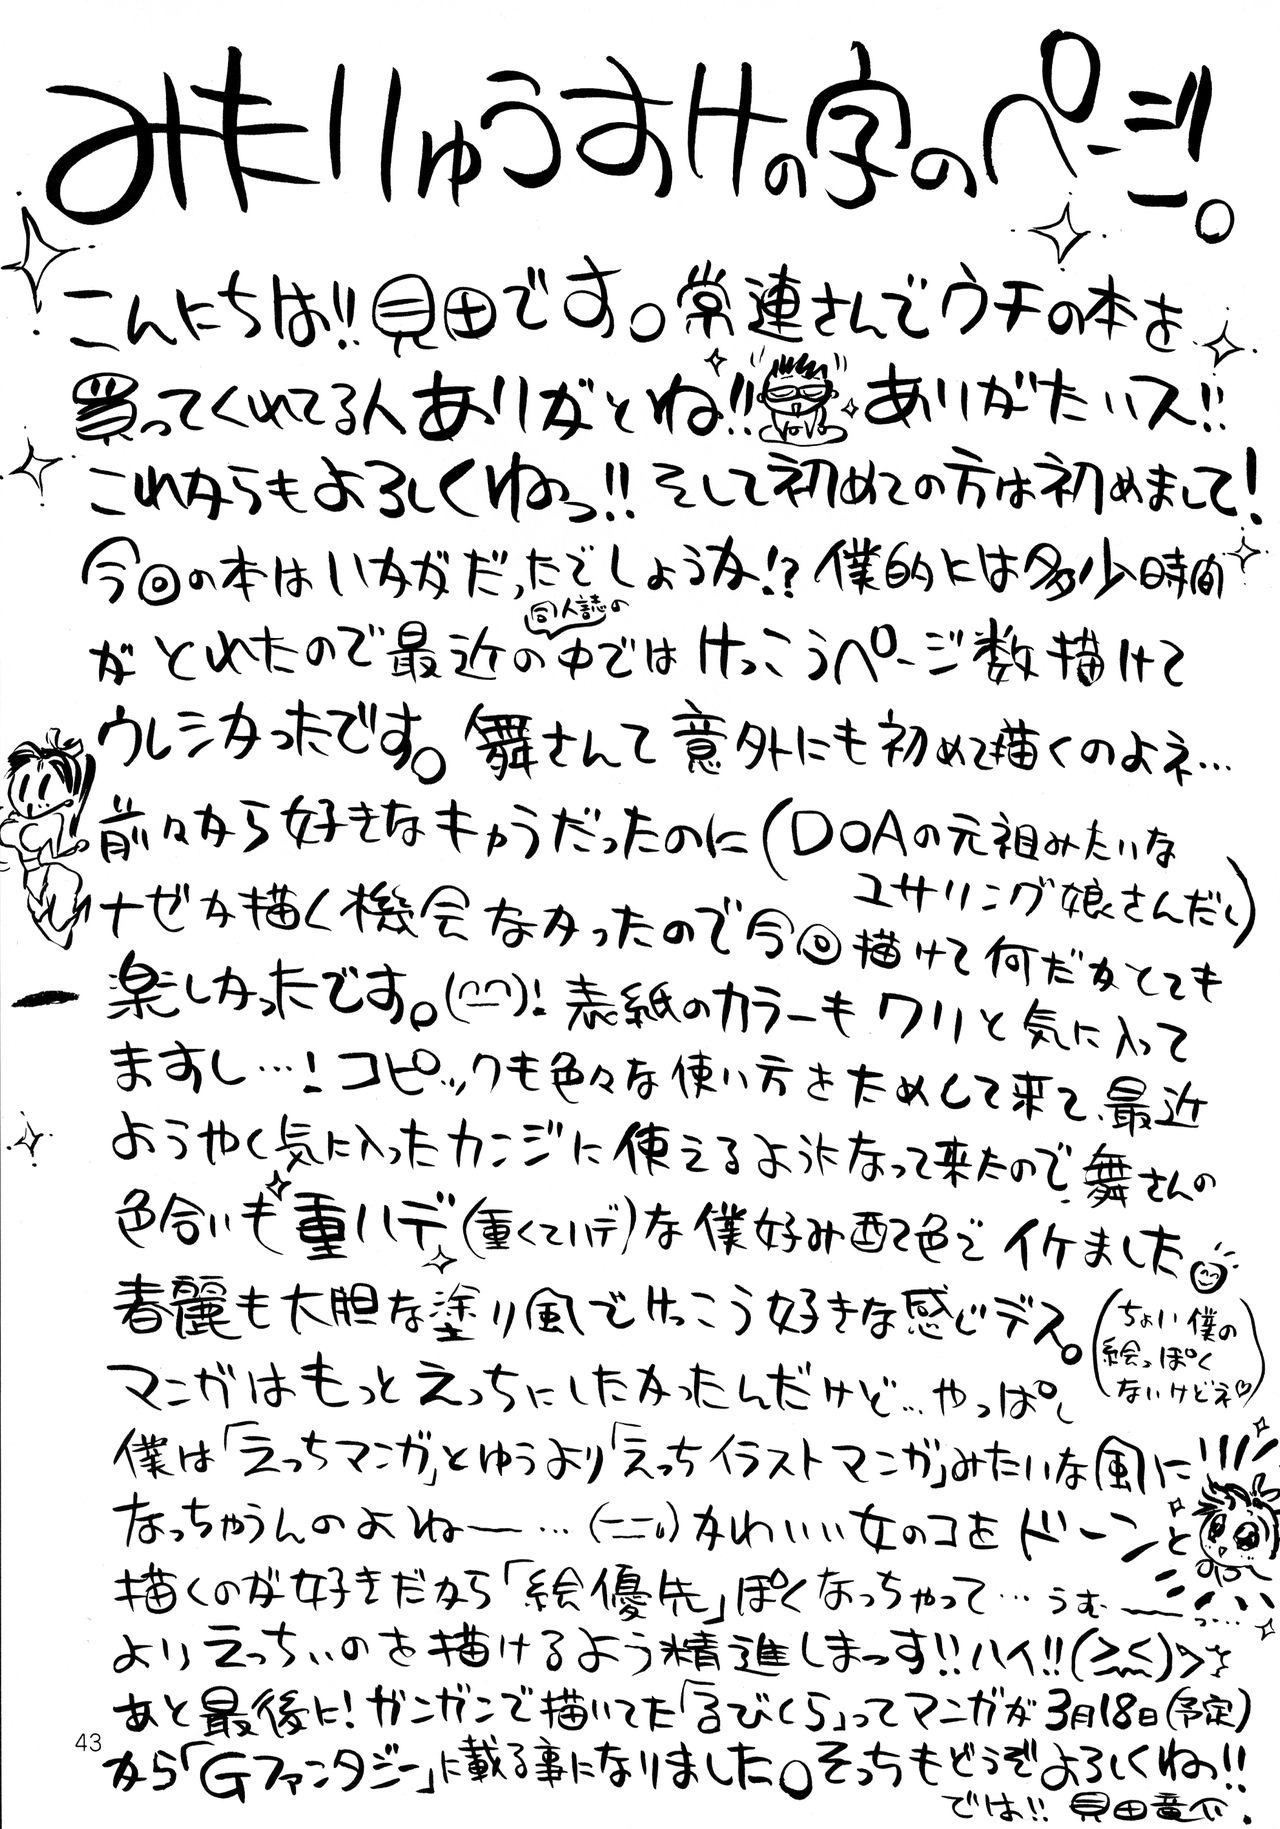 みたりゅうすけの字のページ。
こんにちは!!見田です。常連さんでウチの本を
買ってくれてる人ありがとね!!ありがたいス!!
これからもよろしくねっ!!そして初めての方は初めまして!
今回の本はいかがだったでしょうか!?僕的には多少時間
がとれたので最近の同人誌の中ではけっこうページ数描けて
ウレシかったです。舞さんて意外にも初めて描くのよネ…
前々から好きなキャラだったのに(DOAの元祖みたいな
ユサリング娘さんだし)
ナゼか描く機会なかったので今回描けて何だかとても
楽しかったです。(^^)!表紙のカラーもワリと気に入って
ますし…!コピックも色々な使い方をためして来て、最近
ようやく気に入ったカンジに使えるようになって来たので、舞さんの
色合いも重ハデ(重くてハデ)な僕好み配色でイケました
春麗も大胆な塗り風でけっこう好きな感じデス。
(ちょい僕の
絵っぽく
ないけどネ♡)
マンガはもっとえっちにしたかったんだけど…やっぱし
僕は「えっちマンガ」とゆうより「えっちイラストマンガ」みたいな風に
なっちゃうんのよねー…(ーー;)かわいい女のコをドーンと
描くのが好きだから「絵優先」ぽくなっちゃって…うむーっ…
よりえっちぃのを描けるよう精進しまっす!!ハイ!!(>_<)ゝ
あと最後に!ガンガンで描いてた「るびくら」ってマンガが3月18日(予定)
から「Gファンタジー」に載る事になりました。そっちもどうぞよろしくねっ!!
では!!見田竜介.
43